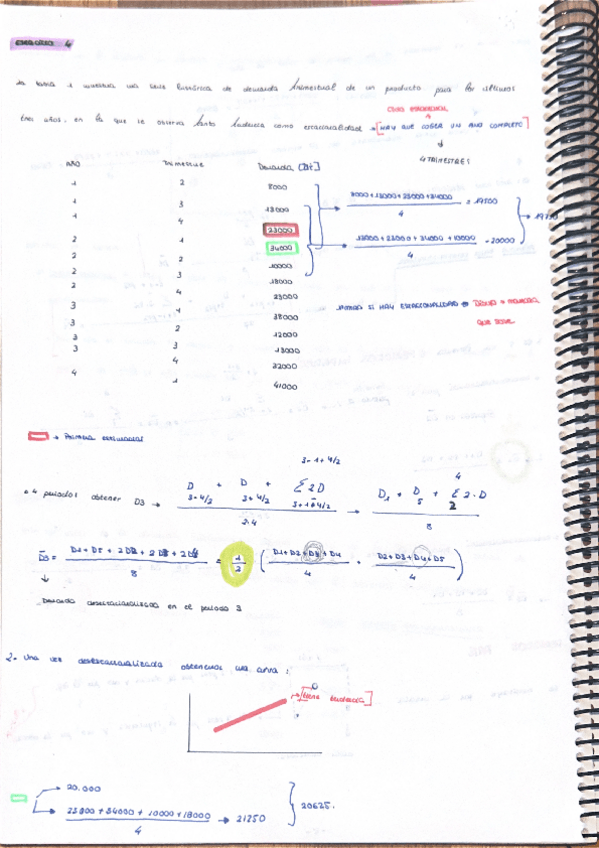 EJERCICIO 4
La tabla 1 muestra una serie histórica de demanda trimestral de un producto para los últimos
CICLO ESTACIONAL
tres años, en la que se observa tanto tendencia como estacionalidad → [HAY QUE COGER UN AÑO COMPLETO]
4 TRIMESTRES
AÑO Trimestre Demanda, [Dt]
1 2 8000
1 3 13000
1 4 23000
2 1 34000
2 2 10000
2 3 18000
2 4 23000
3 1 38000
3 2 12000
3 3 13000
3 4 32000
4 1 41000
8000 + 13000 + 23000 + 34000
4
= 19500
13000 + 23000 + 34000 + 10000
4
= 20000
19750
SI HAY ESTACIONALIDAD
QUE SIRVE
→ Primera estimación
3-1+4/2
4 periodos obtener D3 → D 3-4/2 + D 3+4/2 + Σ 2D
2·4
→ D1 + D5 + Σ 2·D
8
D̄3 = D1 + D5 + 2D2 + 2D3 + 2D4
8
= 1/2 ( D1+D2+D3+D4
4
+ D2+D3+D4+D5
4
)
Demanda desestacionalizada en el periodo 3
2- Una vez desestacionalizada obtenemos una curva:
[tiene tendencia]
→ 20.000
23000 + 34000 + 10000 + 18000
4
→ 21250
20625.